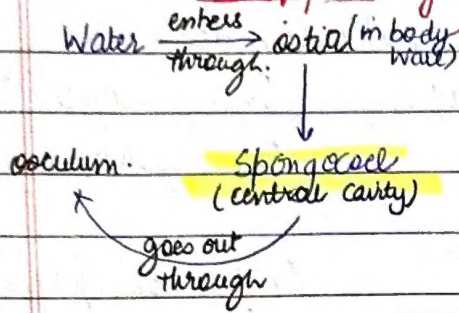 Water enters through. ostia (in body wall)
Spongocoel
(central cavity)
goes out
through
osculum.